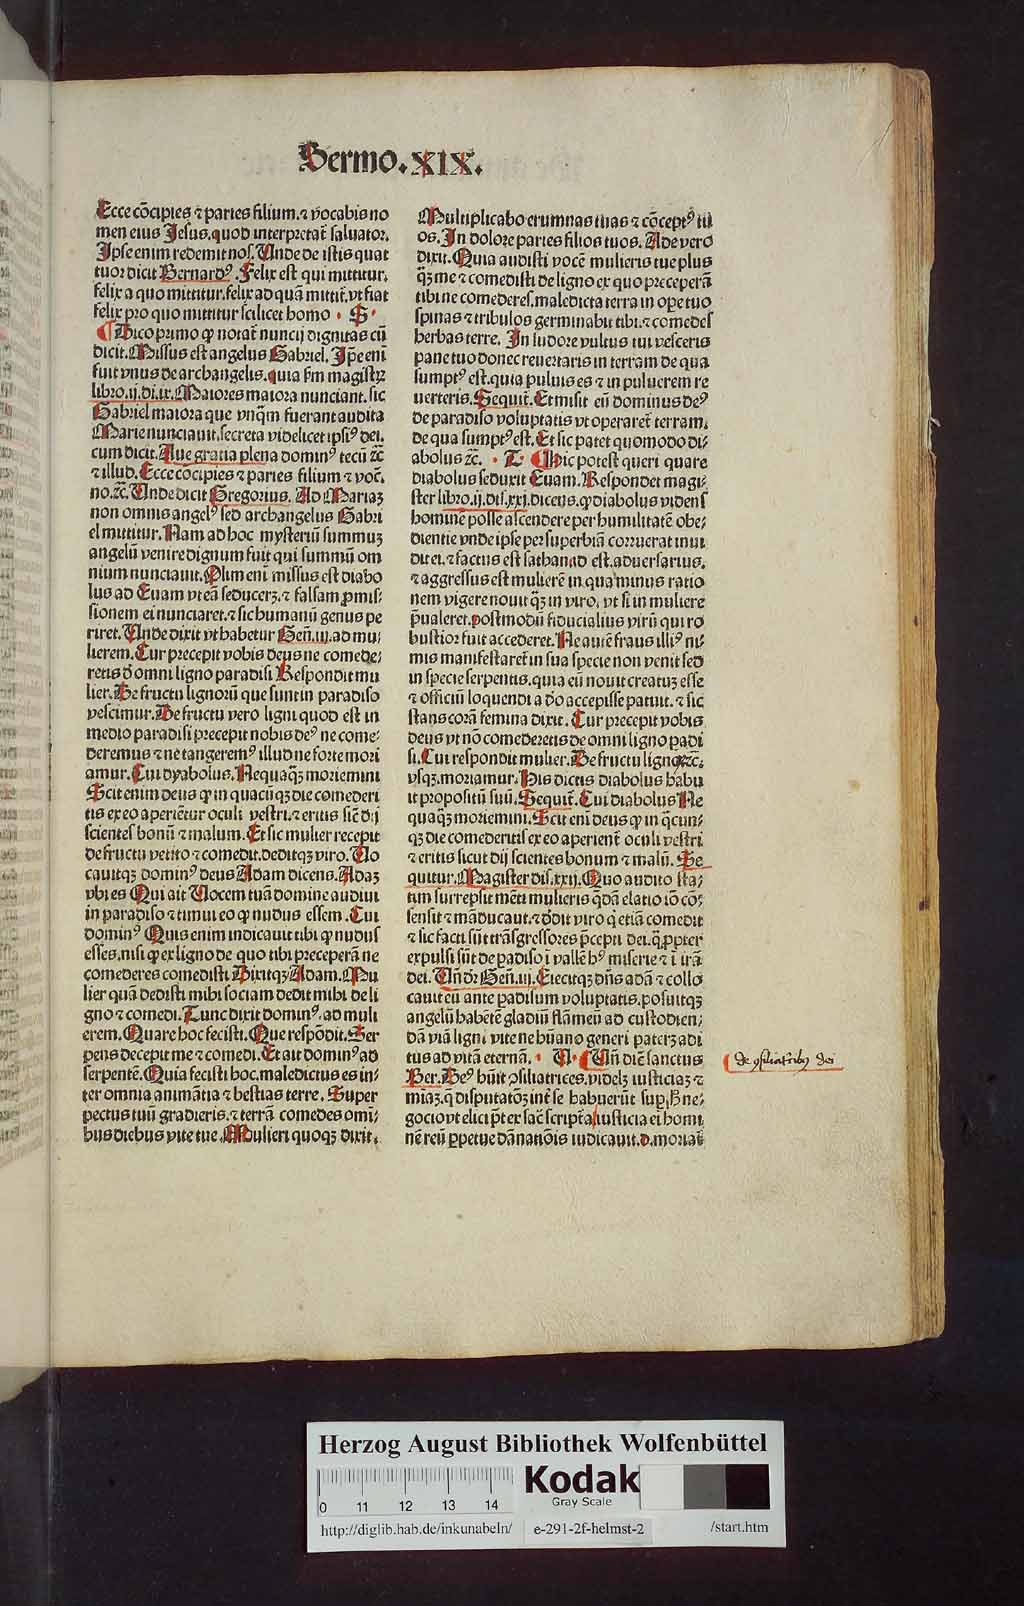 Sermo.XIX.
Ecce cōcipies ⁊ paries filium.⁊ vocabis no
men eius Jesus.quod interpretat᷑ saluator.
Ipse enim redemit nos. Unde de istis quat
tuor dicit Bernardꝰ. Felix est qui mittitur.
felix a quo mittitur.felix ad quā mittit᷑.vt fiat
felix pro quo mittitur scilicet homo · S ·
¶ Dico primo ꝙ notat᷑ nuncij dignitas cū
dicit. Missus est angelus Gabriel. Ip̄e eni
fuit vnus de archangelis.quia s̄m magistꝝ
libro.ij.di.ix. Maiores maiora nunciant. sic
Gabriel maiora que vnq̄m fuerant audita
Marie nunciauit.secreta videlicet ipsiꝰ dei.
cum dicit. Aue gratia plena dominꝰ tecū ⁊c̄
⁊ illud. Ecce cōcipies ⁊ paries filium ⁊ voc̄.
no.⁊c̄. Unde dicit Gregorius. Ad Mariaꝫ
non omnis angelꝰ sed archangelus Gabri
el mittitur. Nam ad hoc mysteriū summuꝫ
angelū venire dignum fuit qui summū om
nium nunciauit. Olim eni missus est diabo
lus ad Euam vt eā seducerꝫ.⁊ falsam ꝓmis⸗
sionem ei nunciaret.⁊ sic humanū genus pe
riret. Unde dixit vt habetur Gen̄.iij.ad mu⸗
lierem. Cur precepit vobis deus ne comede⸗
retis d̄ omni ligno paradisi Respondit mu
lier. De fructu lignorū que sunt in paradiso
vescimur. De fructu vero ligni quod est in
medio paradisi precepit nobis deꝰ ne come⸗
deremus ⁊ ne tangeremꝰ illud ne forte mori
amur. Cui dyabolus. Nequaq̄ꝫ moriemini
Scit enim deus ꝙ in quacūqꝫ die comederi
tis ex eo aperient᷑ur oculi vestri.⁊ eritis sic̄ dij
scientes bonū ⁊ malum. Et sic mulier recepit
de fructu vetito ⁊ comedit.deditqꝫ viro. Uo
cauitqꝫ dominꝰ deus Adam dicens. Adaꝫ
vbi es Qui ait Uocem tuā domine audiui
in paradiso ⁊ timui eo ꝙ nudus essem. Cui
dominꝰ Quis enim indicauit tibi ꝙ nudus
esses.nisi ꝙ ex ligno de quo tibi preceperā ne
comederes comedisti Dixitqꝫ Adam. Mu
lier quā dedisti mihi sociam dedit mihi de li
gno ⁊ comedi. Tunc dixit dominꝰ.ad muli
erem. Quare hoc fecisti. Que respōdit. Ser
pens decepit me ⁊ comedi. Et ait dominꝰ ad
serpentē. Quia fecisti hoc.maledictus es in⸗
ter omnia animātia ⁊ bestias terre. Super
pectus tuū gradieris.⁊ terrā comedes omi⸗
bus diebus vite tue. Mulieri quoqꝫ dixit.
Multiplicabo erumnas tuas ⁊ cōceptꝰ tu
os. In dolore paries filios tuos. Ade vero
dixit. Quia audisti vocē mulieris tue plus
q̄ꝫ me ⁊ comedisti de ligno ex quo preceperā
tibi ne comederes.maledicta terra in ope tuo
spinas ⁊ tribulos germinabit tibi.⁊ comedes
herbas terre. In sudore vultus tui vesceris
pane tuo donec reuertaris in terram de qua
sumptꝰ est.quia puluis es ⁊ in puluerem re
uerteris. Sequit᷑. Et misit eū dominus deꝰ
de paradiso voluptatis vt operaret᷑ terram.
de qua sumptꝰ est. Et sic patet quomodo di⸗
abolus ⁊c̄. · T · ¶ Hic potest queri quare
diabolus seduxit Euam. Respondet magi⸗
ster libro.ij.dis.xxj.dicens.ꝙ diabolus videns
hominē posse ascendere per humilitatē obe⸗
dientie vnde ipse per superbiā corruerat inui
dit ei.⁊ factus est sathan.id est.aduersarius.
⁊ aggressus est mulierē in.qua minus ratio
nem vigere nouit q̄ꝫ in viro.vt si in muliere
p̄ualeret.postmodū fiducialius virū qui ro
bustior fuit accederet. Ne autē fraus illiꝰ ni⸗
mis manifestaret᷑ in sua specie non venit sed
in specie serpentis.quia eū nouit creatuꝫ esse
⁊ officiū loquendi a d̄o accepisse patuit.⁊ sic
stans corā femina dixit. Cur precepit vobis
deus vt nō comederetis de omni ligno padi
si. Cui respondit mulier. De fructu lignoꝝ⁊c̄.
vsqꝫ.moriamur. His dictis diabolus habu
it propositū suū. Sequit᷑. Cui diabolus Ne
quaq̄ꝫ moriemini. Scit eni deus ꝙ in q̄cun⸗
qꝫ die comederitis ex eo aperient᷑ oculi vestri
⁊ eritis sicut dij scientes bonum ⁊ malū. Se
quitur. Magister dis.xxij. Quo audito sta⸗
tim surrepsit mēti mulieris q̄dā elatio iō cō⸗
sensit ⁊ māducauit.⁊ d̄dit viro q̄ etiā comedit
⁊ sic facti sūt trāsgressores p̄cepti dei.q̄.ꝓpter
expulsi sūt de padiso ī vallē hꝰ miserie ⁊ ī irā
dei. Un̄ d̄r Gen̄.iij. Eiecitqꝫ dn̄s adā ⁊ collo
cauit eū ante ꝑadisum voluptatis.posuitqꝫ
angelū habētē gladiū flāmeū ad custodien⸗
dā viā ligni vite ne hūano generi paterꝫ adi
tus ad vitā eternā. · U · ¶ Un̄ diē sanctus
Ber. Deꝰ hūit ꝯsiliatrices.videlꝫ iusticiaꝫ ⁊
mīaꝫ.q̄ disputatōꝫ int᷑ se habuerūt suꝑ h̄ ne⸗
gocio vt elici p̄t ex sac̄ script᷑a iusticia ei homi
nē reū ꝑpetue dānatiōis iudicauit.d.moriat᷑
de ꝯsiliatricibꝫ dei
Herzog August Bibliothek Wolfenbüttel
0 11 12 13 14
Kodak
Gray Scale
http://diglib.hab.de/inkunabeln/ e-291-2f-helmst-2 /start.htm